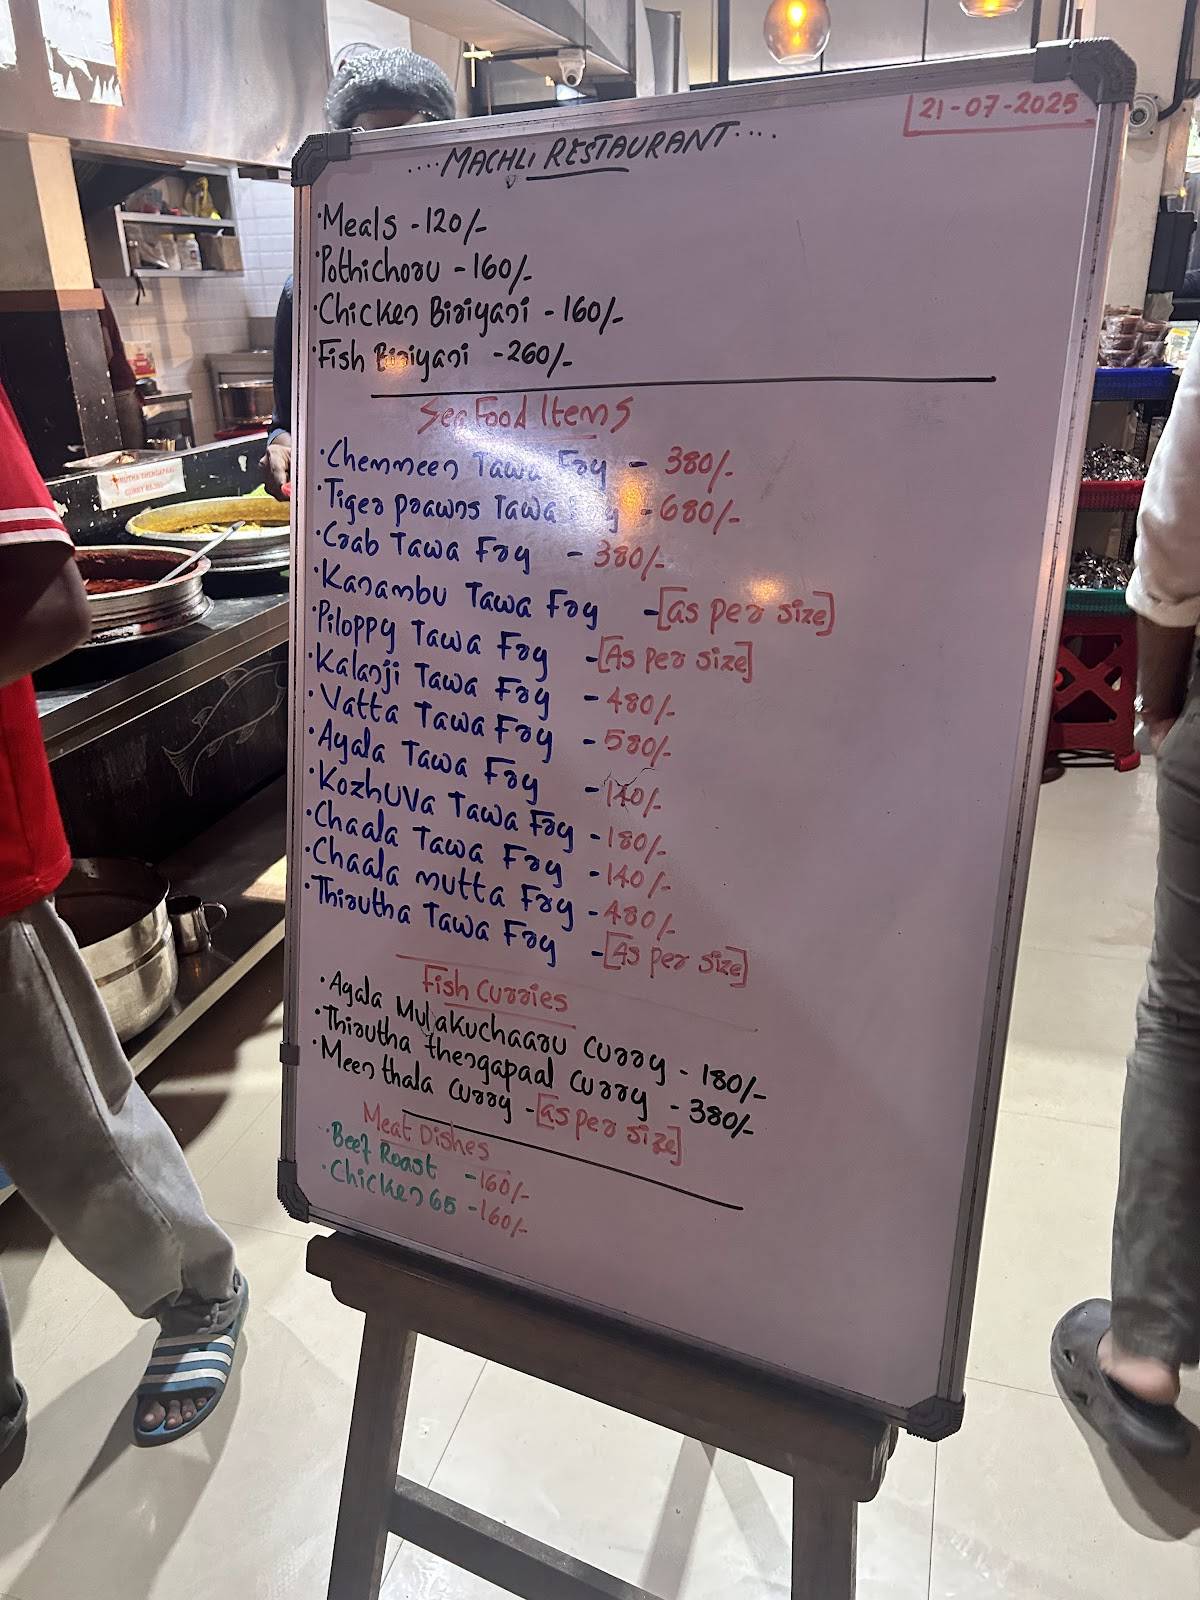 21-07-2025
....MACHLI RESTAURANT....
·Meals -120/-
·Pothichoru -160/-
·Chicken Biriyani -160/-
·Fish Biriyani -260/-
Sea Food Items
·Chemmeen Tawa Fry - 380/-
·Tiger prawns Tawa y -680/-
·Crab Tawa Fry - 380/-
·Karambu Tawa Fry -[as per size]
·Piloppy Tawa Fry -[As per size]
·Kalanji Tawa Fry - 480/-
·Vatta Tawa Fry - 580/-
·Ayala Tawa Fry -140/-
·Kozhuva Tawa Fry -180/-
·Chaala Tawa Fry -140/-
·Chaala mutta Fry -480/-
·Thirutha Tawa Fry -[As per size]
Fish Curries
·Ayala Mulakuchaaru curry - 180/-
·Thirutha thengapaal curry - 380/-
·Meen thala curry -[as per size]
Meat Dishes
·Beef Roast -160/-
·Chicken 65 -160/-